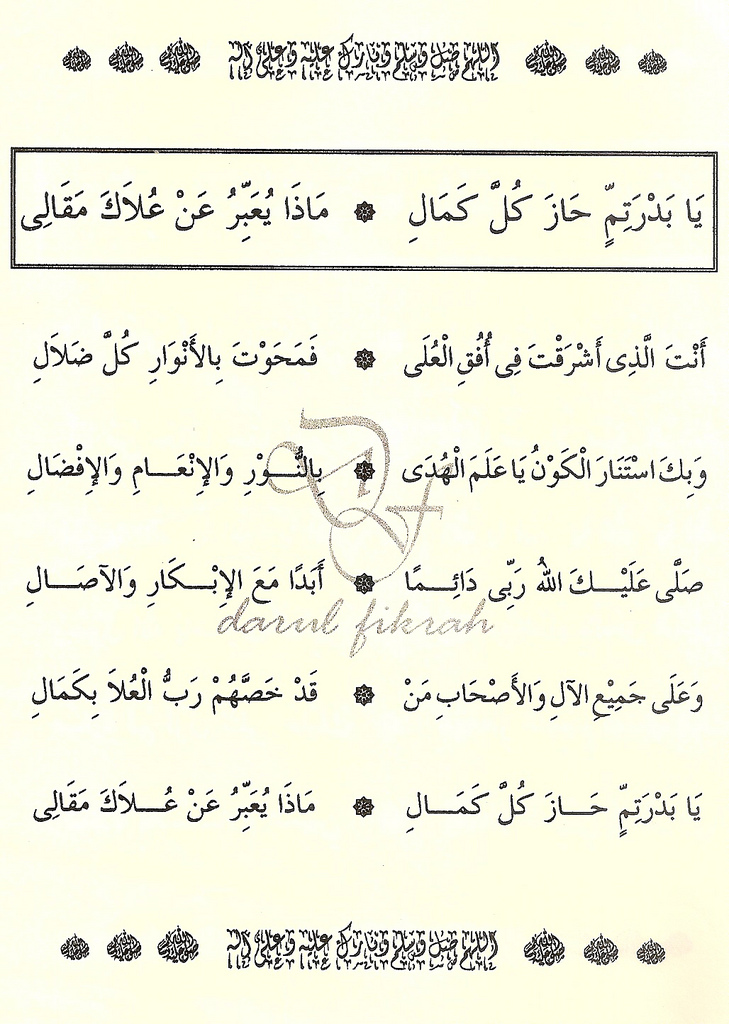 اللهم صل وسلم وبارك عليه وعلى آله
يَا بَدْرَتِمٍّ حَازَ كُلَّ كَمَالِ ۞ مَاذَا يُعَبِّرُ عَنْ عُلاَكَ مَقَالِى
أَنْتَ الَّذِى أَشْرَقْتَ فِى أُفُقِ الْعُلَى ۞ فَمَحَوْتَ بِالأَنْوَارِ كُلَّ ضَلاَلِ
وَبِكَ اسْتَنَارَ الْكَوْنُ يَا عَلَمَ الْهُدَى ۞ بِالنُّـــوْرِ وَالإِنْعَـــامِ وَالإِفْضَالِ
صَلَّى عَلَيْـــكَ اللهُ رَبِّى دَائِـــمًا ۞ أَبَدًا مَعَ الإِبْـــكَارِ وَالآصَـــالِ
darul fikrah
وَعَلَى جَمِيْعِ الآلِ وَالأَصْحَابِ مَنْ ۞ قَدْ خَصَّهُمْ رَبُّ الْعُلاَ بِكَمَالِ
يَا بَدْرَتِمٍّ حَـــازَ كُلَّ كَمَـــالِ ۞ مَاذَا يُعَبِّرُ عَنْ عُـــلاَكَ مَقَالِى
اللهم صل وسلم وبارك عليه وعلى آله